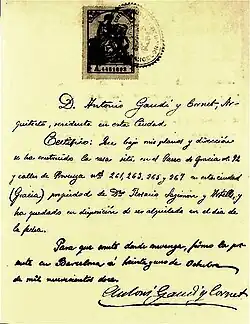 D. Antonio Gaudí y Cornet, Ar-
quitecto, residente en esta Ciudad.
Certifico: Que bajo mis planos y dirección
se ha construido la casa sita, en el Paseo de Gracia nº 92
y calle de Provenza nºs 261, 263, 265 y 267 en esta ciudad
(Gracia) propiedad de Dña Rosario Segimon y Artells, y
ha quedado en disposición de ser alquilada en el día de
la fecha.
Para que conste donde convenga, firmo la pre-
sente en Barcelona á treintayuno de Octubre
de mil novecientos doce.
Antoni Gaudí y Cornet